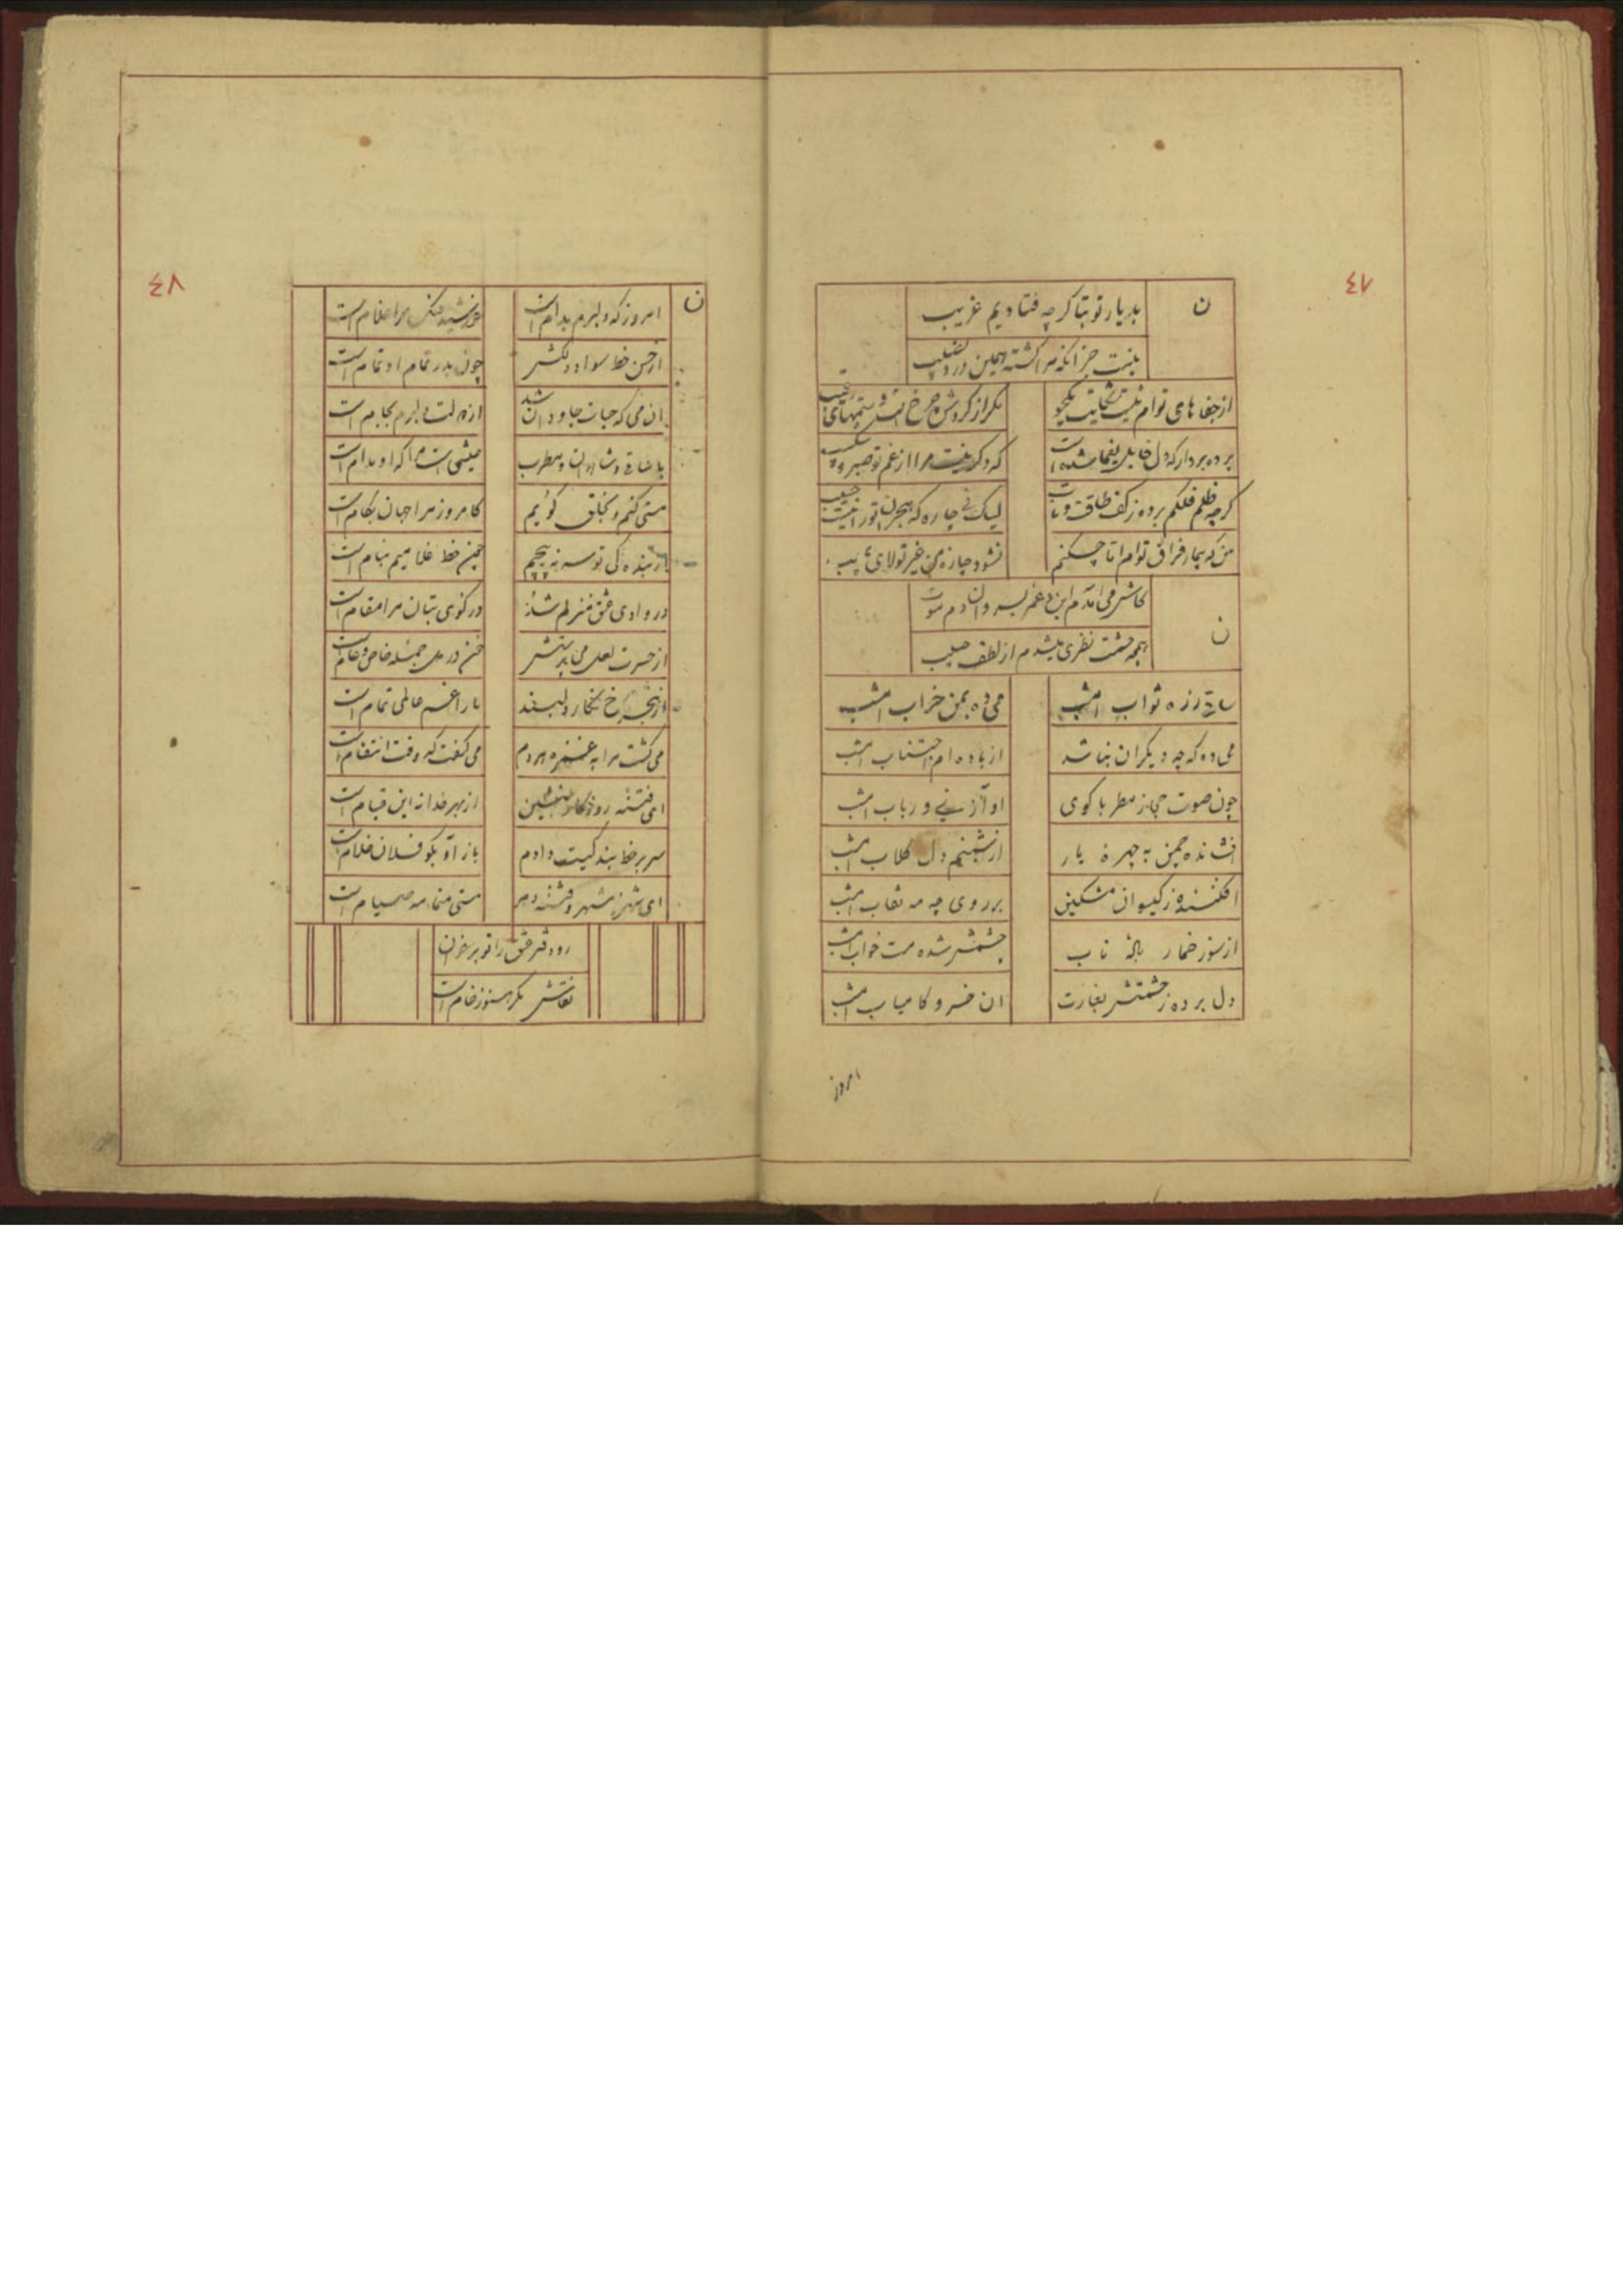 ٤٧
ن
بدیار تو بتا گرچه فتادیم غریب
نیست جز انکه مرا گشته همین درد نصیب
از جفاهای توام نیست شکایت یکجو
مگر از گردش چرخ است و ستمهای رقیب
پرده بردار که دل یغما شده است
که دگر نیست مرا از غم تو صبر و شکیب
گرچه ظلم فلکم برده ز کف طاقت و تاب
لیک نی چاره که هجران تو را نیست
من که بیمار فراق توام اما چکنم
نشود چاره من غیر تولای
ن
کاش می امدم این دم
همچه حشمت نظری میشدم از لطف حبیب
ساقی ز ره ثواب امشب
می ده بمن خراب امشب
می ده که چه دیگران نباشد
از باده ام اجتناب امشب
چون صوت حجاز مطربا گوی
اواز نی و رباب امشب
افشانده چمن به چهره یار
از شبنم دل گلاب امشب
افکنده ز گیسوان مشکین
بر روی چه مه نقاب امشب
از سوز خمار باده ناب
چشمش شده مست خواب امشب
دل برده ز حشمتش بغارت
ان خسرو کامیاب امشب
امروز
٤٨
ن
امروز که دلبرم بدام است
خورشید فلک مرا غلام است
از حسن خط سواد دلکش
چون بدر تمام او تمام است
ان می که حیات جاودان شد
از دولت دلبرم بجام است
با ساقی و شاهدان و مطرب
عیشی است مرا که او مدام است
مستی کنم و بخلق گویم
کامروز مرا جهان بکام است
از بنده گی تو سر نه پیچم
چون خط غلامیم بنام است
در وادی عشق منزلم شد
در کوی بتان مرا مقام است
از حسرت لعل می پرستش
خون در دل جمله خاص و عام است
از هجر رخ نگار دلبند
بار غم عالمی تمام است
می کشت مرا به غمزه هر دم
می گفت که وقت انتقام است
ای فتنه روزگار بنشین
از بهر خدا نه این قیام است
سر بر خط بندگیت دادم
باز آ و بگو فلان غلام است
ای شهره شهر و فتنه دهر
مستی منما مه صیام است
رو دفتر عشق را تو بر خوان
نقاش مگر هنوز خام است